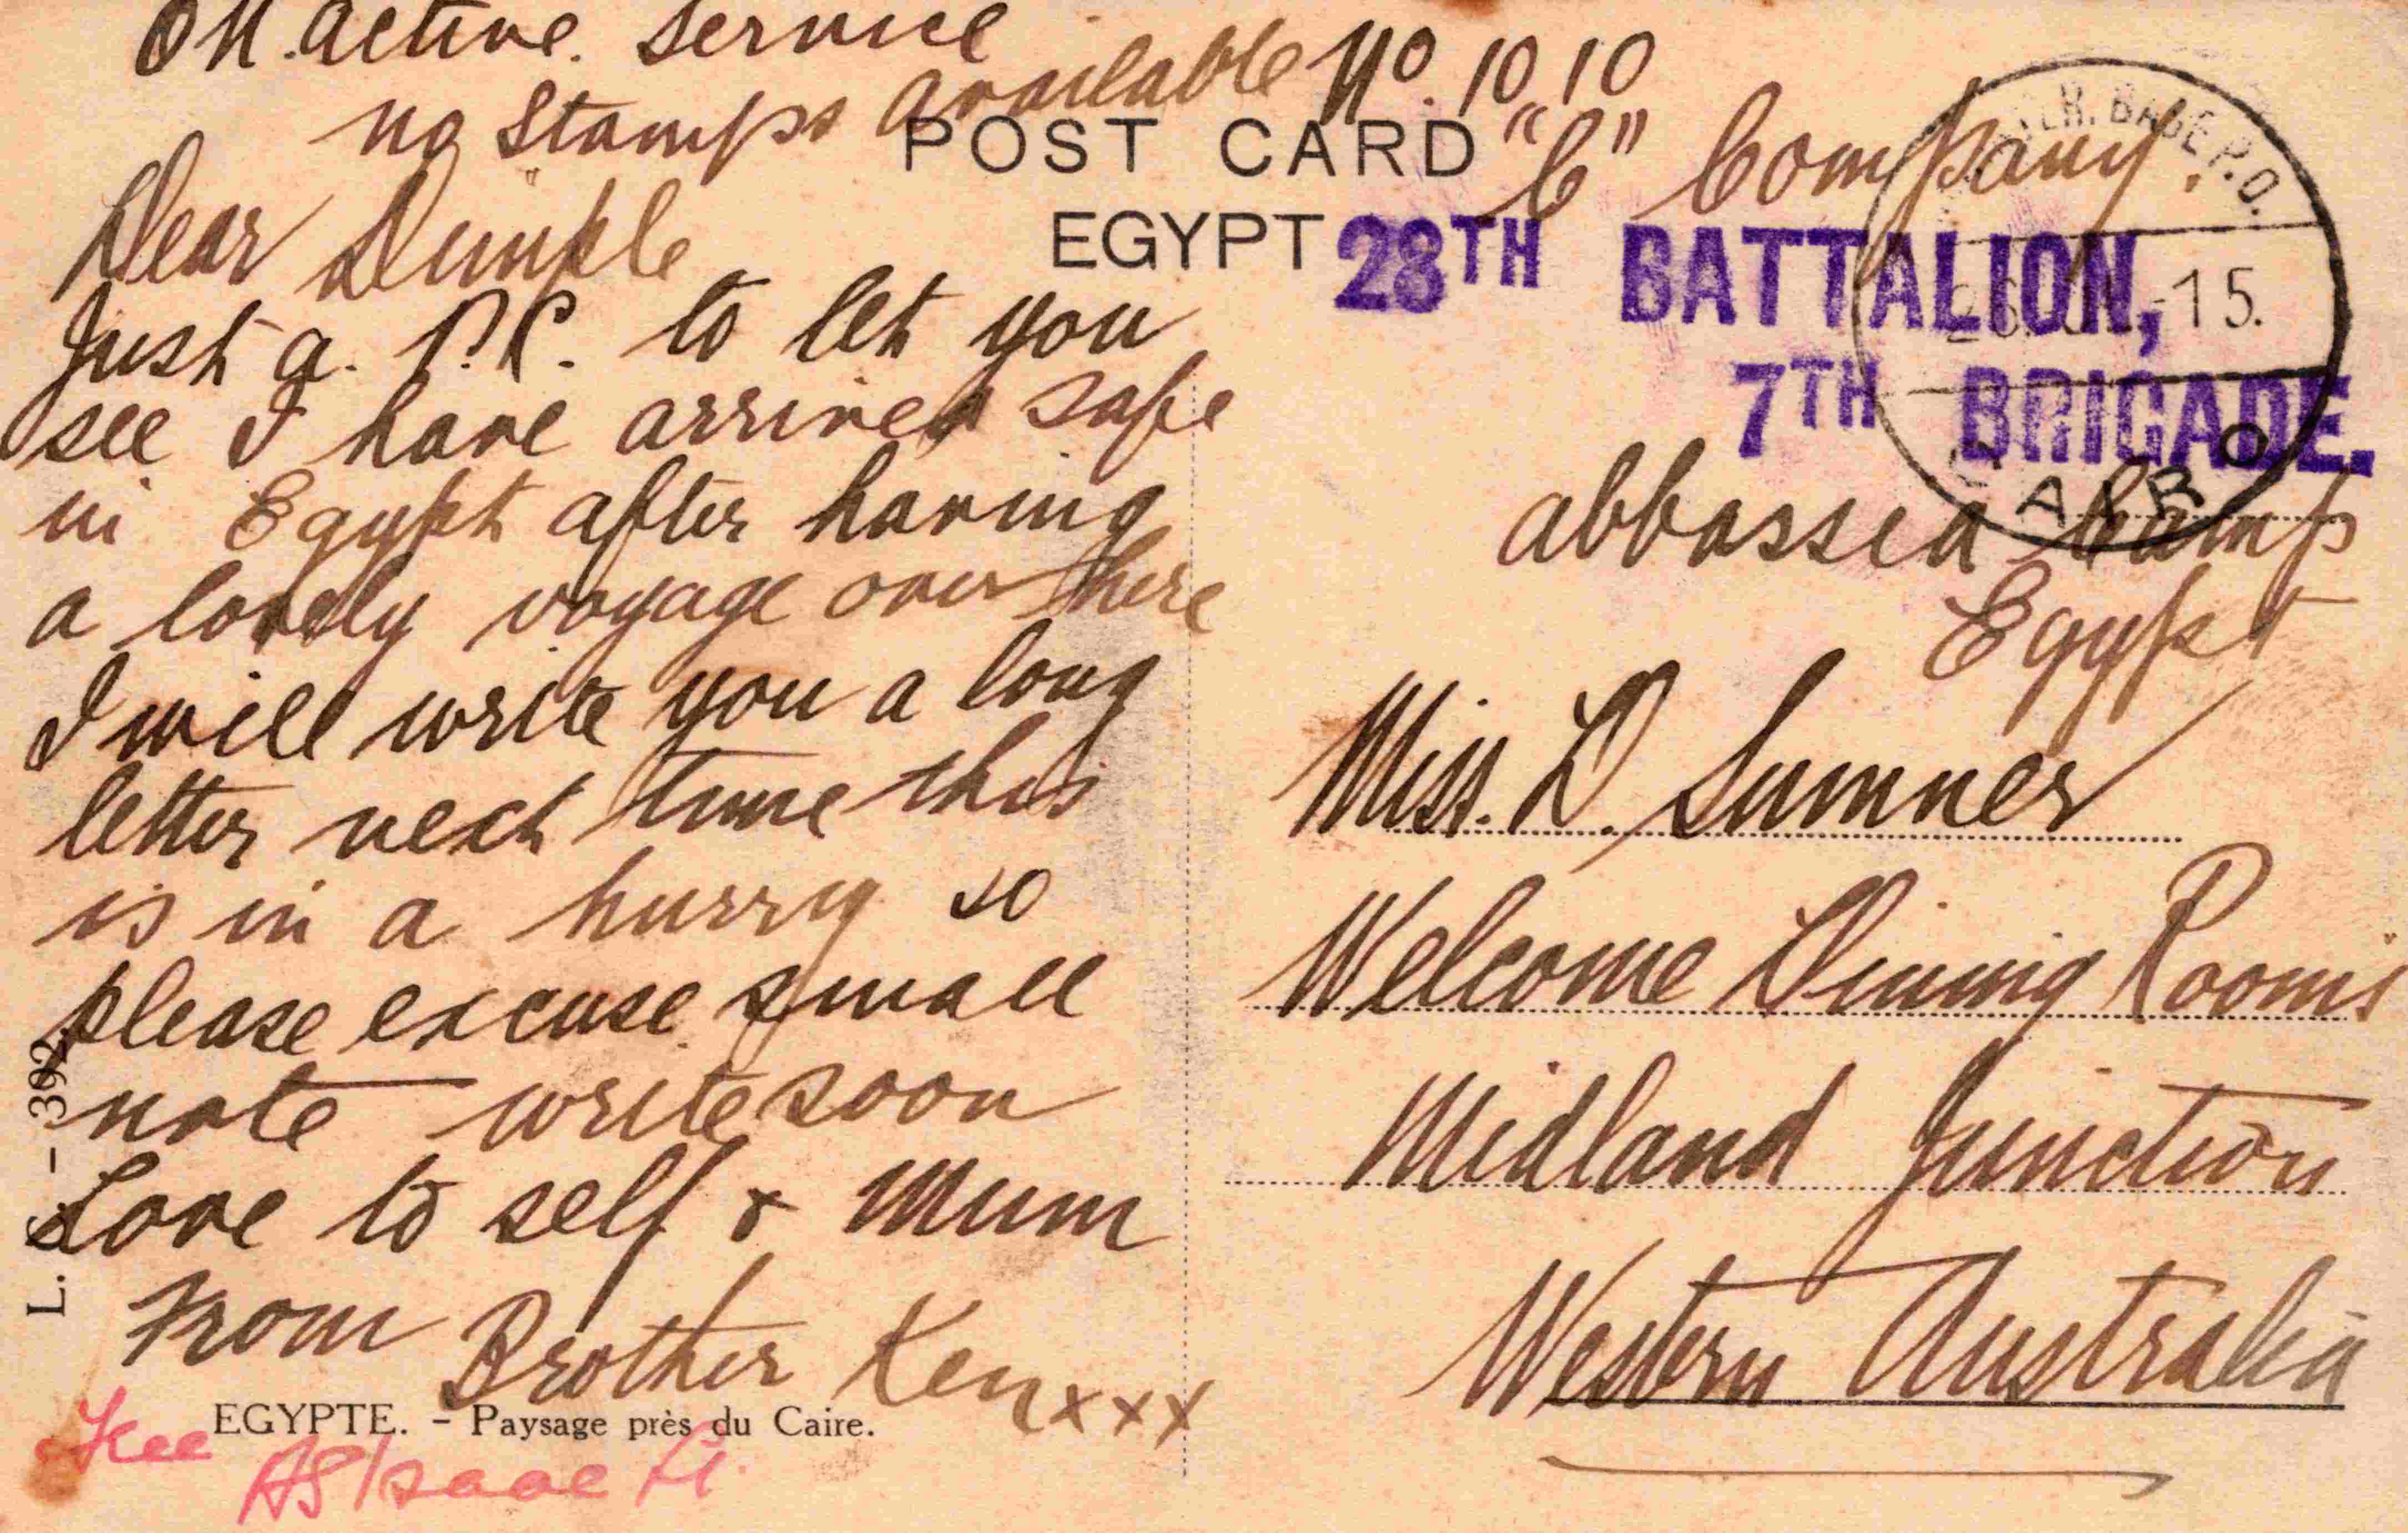 On. active. Service
no Stamps available
No. 1010
POST CARD
"C" Company.
EGYPT
28TH BATTALION,
7TH BRIGADE.
BASE P.O.
15.
CAIRO
abbassia Camp
Egypt
Dear Dimple
Just a. P.C. to let you
see I have arrived safe
in Egypt after having
a lovely voyage over here
I will write you a long
letter next time this
is in a hurry so
please excuse small
note write soon
Love to self & Mum
From Brother Ken xxx
Miss. D. Sumner
Welcome Dining Rooms
Midland Junction
Western Australia
EGYPTE. – Paysage près du Caire.
392